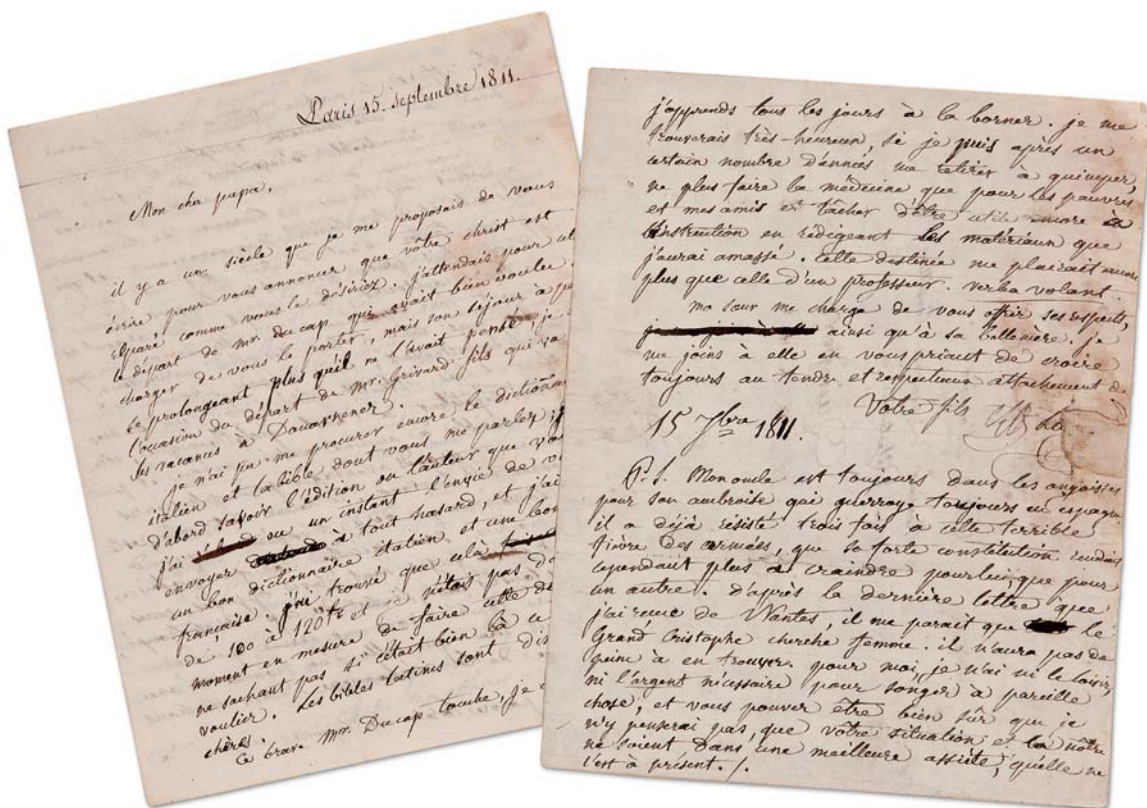 Paris 15. septembre 1811.
Mon cher papa,
il y a un siècle que je me proposais de vous
écrire pour vous annoncer que vôtre christ est
réparé comme vous le désiriez. j'attendais pour cela
le départ de mr. ducap qui avait bien voulu se
charger de vous le porter, mais son séjour à
se prolongeant plus qu'il ne l'avait pensé, je
l'occasion du départ de mr. Grivard fils qui va
les vacances à Douarnenez.
je n'ai pu me procurer encore le dictionnaire
italien et la bible dont vous me parlez. j
d'abord savoir l'édition ou l'auteur que vo
j'ai eu un instant l'envie de v
envoyer à tout hasard, et j'ai
un bon dictionnaire italien et une bon
française. j'ai trouvé que celà
de 100 à 120 et je n'étais pas d
moment en mesure de faire cette de
ne sachant pas si c'était bien là ce
voulier. Les bibles latines sont
chères.
Ce brave Mr. Ducap tache, je
j'apprends tous les jours à la borner. je me
trouverais très-heureux, si je puis après un
certain nombre d'années me retirer à quimper,
ne plus faire la médecine que pour les pauvres
et mes amis et tâcher d'être utile encore à
l'instruction en rédigeant les matériaux que
j'aurai amassé. cette destinée me plairait encore
plus que celle d'un professeur. verba volant.
ma sœur me charge de vous offrir ses respects,
ainsi qu'à sa bellemère. je
me joins à elle en vous priant de croire
toujours au tendre et respectueux attachement de
Votre fils
15 7bre 1811.
P. S. Mon oncle est toujours dans les angoisses
pour son ambroise qui guerroye toujours en espagne
il a déjà résisté trois fois à cette terrible
fièvre des armées, que sa forte constitution rendait
cependant plus à craindre pour lui que pour
un autre. d'après la dernière lettre que
j'ai reçue de Nantes, il me parait que le
Grand Cristophe cherche femme. il n'aura pas de
peine à en trouver. pour moi, je n'ai ni le loisir,
ni l'argent nécessaire pour songer à pareille
chose, et vous pouvez être bien sûr que je
n'y penserai pas, que vôtre situation et la nôtre
ne soient dans une meilleure assiete, qu'elle ne
l'est à présent. /.